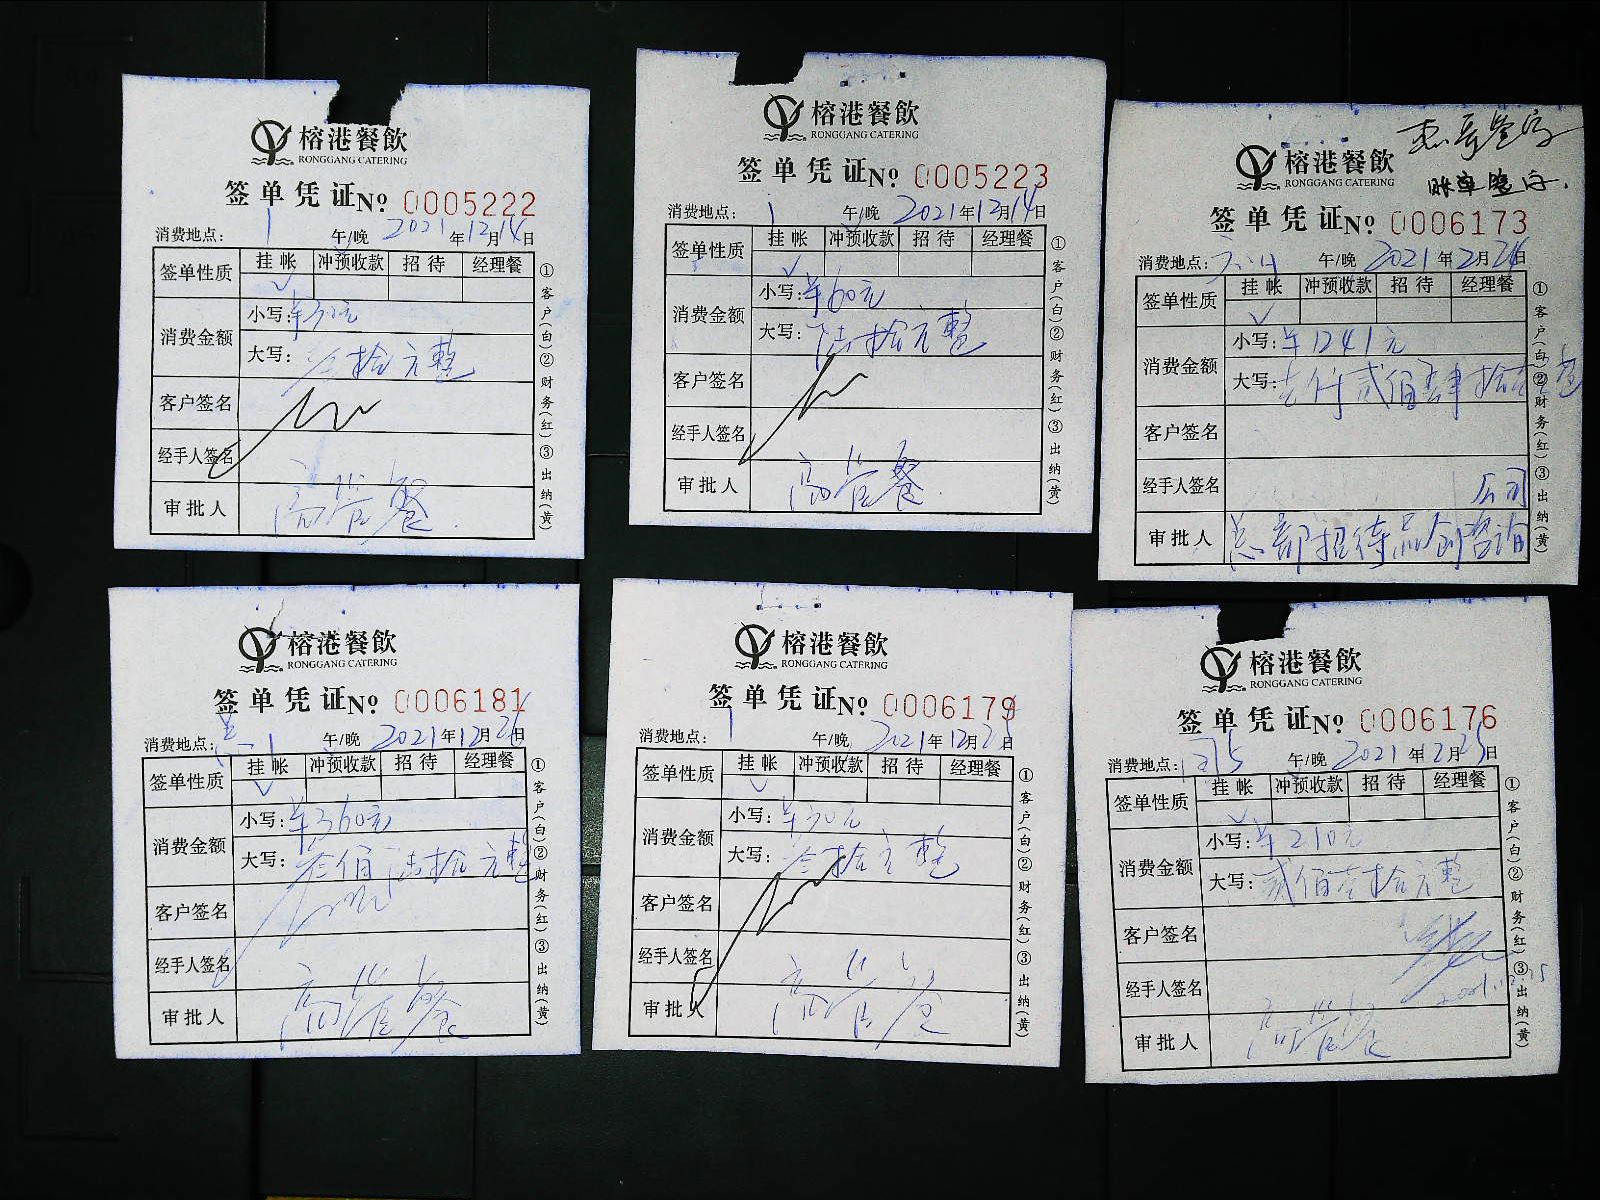 榕港餐飲
RONGGANG CATERING
签单凭证 No 0005222
消费地点: 1 午/晚 2021年12月14日
签单性质 挂帐 冲预收款 招待 经理餐
消费金额 小写: ¥30元
大写: 叁拾元整
客户签名
经手人签名
审批人 高管餐
①客户(白)②财务(红)③出纳(黄)
榕港餐飲
RONGGANG CATERING
签单凭证 No 0005223
消费地点: 1 午/晚 2021年12月14日
签单性质 挂帐 冲预收款 招待 经理餐
消费金额 小写: ¥60元
大写: 陆拾元整
客户签名
经手人签名
审批人 高管餐
①客户(白)②财务(红)③出纳(黄)
榕港餐飲
RONGGANG CATERING
签单凭证 No 0006173
消费地点: 午/晚 2021年12月24日
签单性质 挂帐 冲预收款 招待 经理餐
消费金额 小写: ¥1241元
大写: 壹仟贰佰肆拾壹元整
客户签名
经手人签名 公司
审批人 总部招待品创咨询
①客户(白)②财务(红)③出纳(黄)
榕港餐飲
RONGGANG CATERING
签单凭证 No 0006181
消费地点: 午/晚 2021年12月26日
签单性质 挂帐 冲预收款 招待 经理餐
消费金额 小写: ¥360元
大写: 叁佰陆拾元整
客户签名
经手人签名
审批人 高管餐
①客户(白)②财务(红)③出纳(黄)
榕港餐飲
RONGGANG CATERING
签单凭证 No 0006179
消费地点: 1 午/晚 2021年12月25日
签单性质 挂帐 冲预收款 招待 经理餐
消费金额 小写: ¥30元
大写: 叁拾元整
客户签名
经手人签名
审批人 高管餐
①客户(白)②财务(红)③出纳(黄)
榕港餐飲
RONGGANG CATERING
签单凭证 No 0006176
消费地点: 午/晚 2021年12月25日
签单性质 挂帐 冲预收款 招待 经理餐
消费金额 小写: ¥210元
大写: 贰佰壹拾元整
客户签名
经手人签名
审批人 高管餐
①客户(白)②财务(红)③出纳(黄)